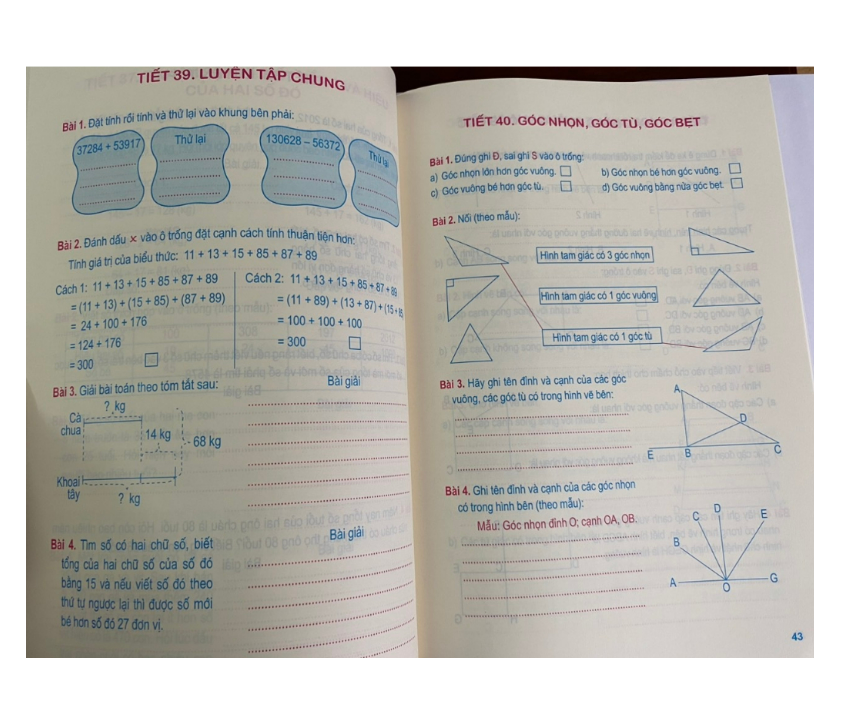 TIẾT 39. LUYỆN TẬP CHUNG
Bài 1. Đặt tính rồi tính và thử lại vào khung bên phải:
37284 + 53917
Thử lại
130628 – 56372
Thử lại
Bài 2. Đánh dấu × vào ô trống đặt cạnh cách tính thuận tiện hơn:
Tính giá trị của biểu thức: 11 + 13 + 15 + 85 + 87 + 89
Cách 1: 11 + 13 + 15 + 85 + 87 + 89
= (11 + 13) + (15 + 85) + (87 + 89)
= 24 + 100 + 176
= 124 + 176
= 300
Cách 2: 11 + 13 + 15 + 85 + 87 + 89
= (11 + 89) + (13 + 87) + (15 + 85
= 100 + 100 + 100
= 300
Bài 3. Giải bài toán theo tóm tắt sau:
? kg
Cà
chua
14 kg
68 kg
Khoai
tây
? kg
Bài giải
Bài 4. Tìm số có hai chữ số, biết
tổng của hai chữ số của số đó
bằng 15 và nếu viết số đó theo
thứ tự ngược lại thì được số mới
bé hơn số đó 27 đơn vị.
Bài giải
TIẾT 40. GÓC NHỌN, GÓC TÙ, GÓC BẸT
Bài 1. Đúng ghi Đ, sai ghi S vào ô trống:
a) Góc nhọn lớn hơn góc vuông.
b) Góc nhọn bé hơn góc vuông.
c) Góc vuông bé hơn góc tù.
d) Góc vuông bằng nửa góc bẹt.
Bài 2. Nối (theo mẫu):
Hình tam giác có 3 góc nhọn
Hình tam giác có 1 góc vuông
Hình tam giác có 1 góc tù
Bài 3. Hãy ghi tên đỉnh và cạnh của các góc
vuông, các góc tù có trong hình vẽ bên:
A
D
E B C
Bài 4. Ghi tên đỉnh và cạnh của các góc nhọn
có trong hình bên (theo mẫu):
Mẫu: Góc nhọn đỉnh O; cạnh OA, OB.
C D E
B
A O G
43